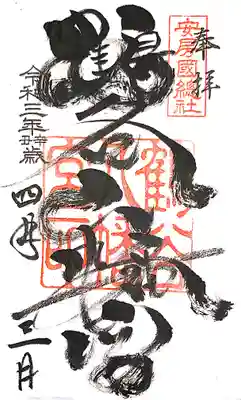 奉拝
安房國總社
鶴谷八幡宮
令和三年辛丑歳
四月
三日